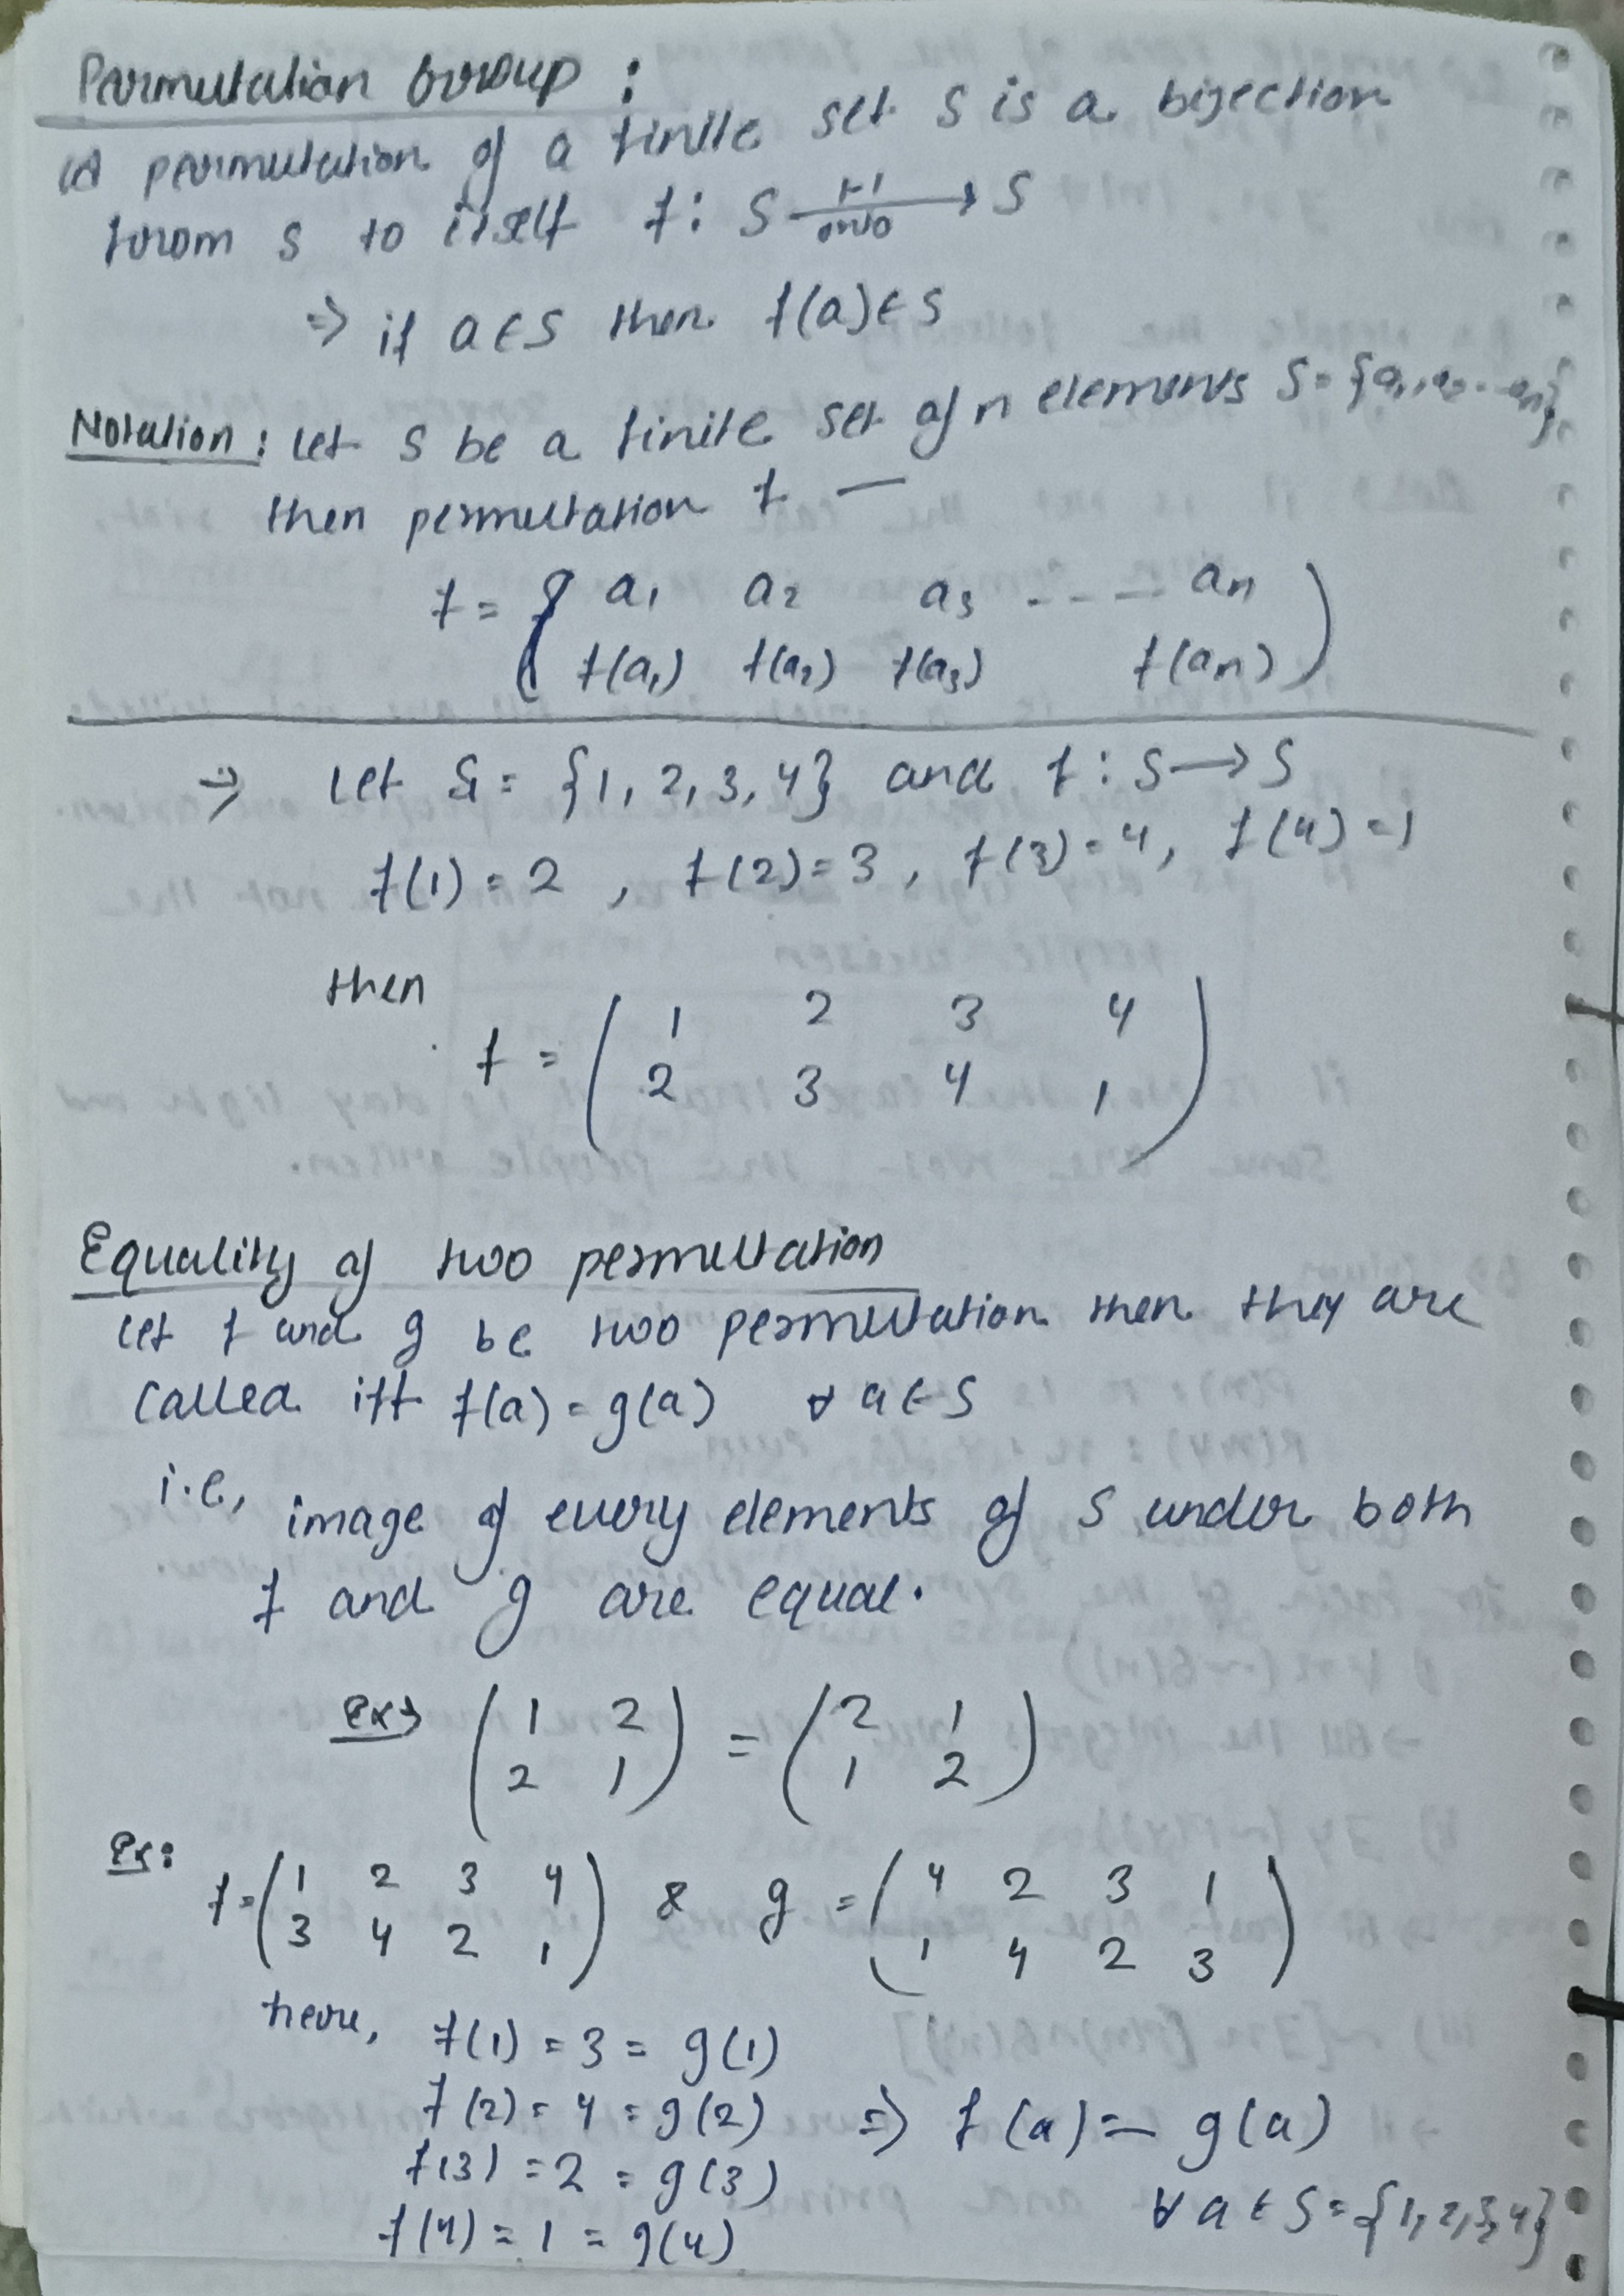 Permutation Group :
A permutation of a finite set S is a bijection
from S to itself f : S 1-1 onto → S
⇒ if a ∈ S then f(a) ∈ S
Notation : Let S be a finite set of n elements S = {a1, a2, ... an}
then permutation f —
f = ( a1 a2 a3 - - - an
f(a1) f(a2) f(a3) f(an) )
⇒ Let S = {1, 2, 3, 4} and f : S → S
f(1) = 2 , f(2) = 3 , f(3) = 4, f(4) = 1
then
f = ( 1 2 3 4
2 3 4 1 )
Equality of two permutation
Let f and g be two permutation then they are
called iff f(a) = g(a) ∀ a ∈ S
i.e, image of every elements of S under both
f and g are equal.
Ex→ ( 1 2 ) = ( 2 1 )
( 2 1 ) ( 1 2 )
Ex:
f = ( 1 2 3 4 ) & g = ( 4 2 3 1 )
( 3 4 2 1 ) ( 1 4 2 3 )
here, f(1) = 3 = g(1)
f(2) = 4 = g(2) ⇒ f(a) = g(a)
f(3) = 2 = g(3)
∀ a ∈ S = {1, 2, 3, 4}
f(4) = 1 = g(4)